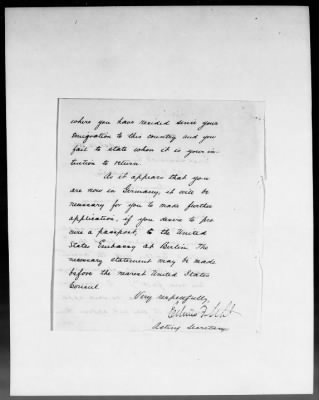 where you have resided since your
emigration to this country and you
fail to state when it is your in-
tention to return.
As it appears that you
are now in Germany, it will be
necessary for you to made further
application, if you desire to pro
cure a passport, to the United
States Embassy at Berlin. The
necessary statement may be made
before the nearest United States
Consul.
Very respectfully,
Acting Secretary